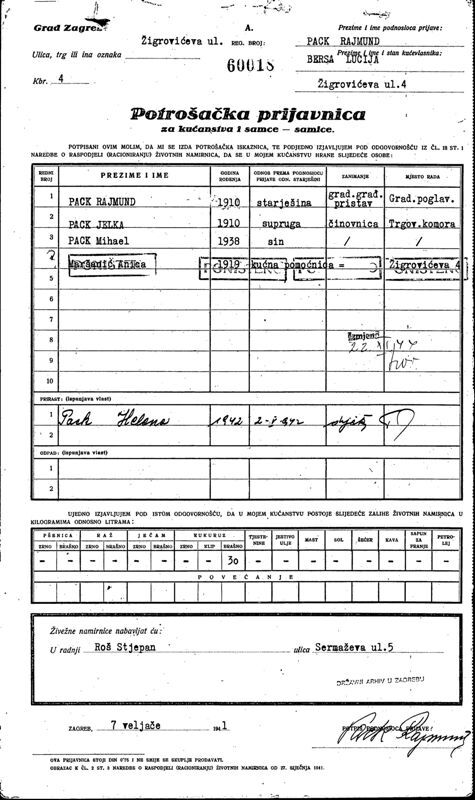 Grad Zagreb
A.
Prezime i ime podnosioca prijave:
Ulica, trg ili ina oznaka
Žigrovićeva ul.
REG. BROJ:
PACK RAJMUND
Prezime i ime i stan kućevlasnika:
60018
BERSA LUCIJA
Kbr. 4
Žigrovićeva ul.4
Potrošačka prijavnica
za kućanstva i samce — samice.
POTPISANI OVIM MOLIM, DA MI SE IZDA POTROŠAČKA ISKAZNICA, TE PODJEDNO IZJAVLJUJEM POD ODGOVORNOŠĆU IZ ČL. 18 ST. 1
NAREDBE O RASPODJELI (RACIONIRANJU) ŽIVOTNIH NAMIRNICA, DA SE U MOJEM KUĆANSTVU HRANE SLIJEDEĆE OSOBE:
REDNI BROJ PREZIME I IME GODINA ROĐENJA ODNOS PREMA PODNOSIOCU PRIJAVE ODN. STARJEŠINI ZANIMANJE MJESTO RADA
1 PACK RAJMUND 1910 starješina grad.građ. pristav Grad.poglav.
2 PACK JELKA 1910 supruga činovnica Trgov.komora
3 PACK Mihael 1938 sin / /
Maršanić Anica 1919 kućna pomoćnica = Žigrovićeva 4
5
6
7
8
9
10
PRIRAST: (ispunjava vlast)
1 Pack Helena 1942
2
OTPAD: (ispunjava vlast)
1
2
UJEDNO IZJAVLJUJEM POD ISTOM ODGOVORNOŠĆU, DA U MOJEM KUĆANSTVU POSTOJE SLIJEDEĆE ZALIHE ŽIVOTNIH NAMIRNICA U
KILOGRAMIMA ODNOSNO LITRAMA:
PŠENICA RAŽ JEČAM KUKURUZ TJESTENINE JESTIVO ULJE MAST SOL ŠEĆER KAVA SAPUN ZA PRANJE PETROLEJ
ZRNO BRAŠNO ZRNO BRAŠNO ZRNO BRAŠNO ZRNO KLIP BRAŠNO
- - - - - - - - 30 - - - - - - - -
POVEĆANJE
Živežne namirnice nabavljat ću:
U radnji Roš Stjepan ulica Sermaževa ul.5
DRŽAVNI ARHIV U ZAGREBU
ZAGREB, 7 veljače 1941
POTPIS PODNOSIOCA PRIJAVE:
Pack Rajmund
OVA PRIJAVNICA STOJI DIN 0'75 I NE SMIJE SE SKUPLJE PRODAVATI.
OBRAZAC K ČL. 2 ST. 3 NAREDBE O RASPODJELI (RACIONIRANJU) ŽIVOTNIH NAMIRNICA OD 27. SIJEČNJA 1941.